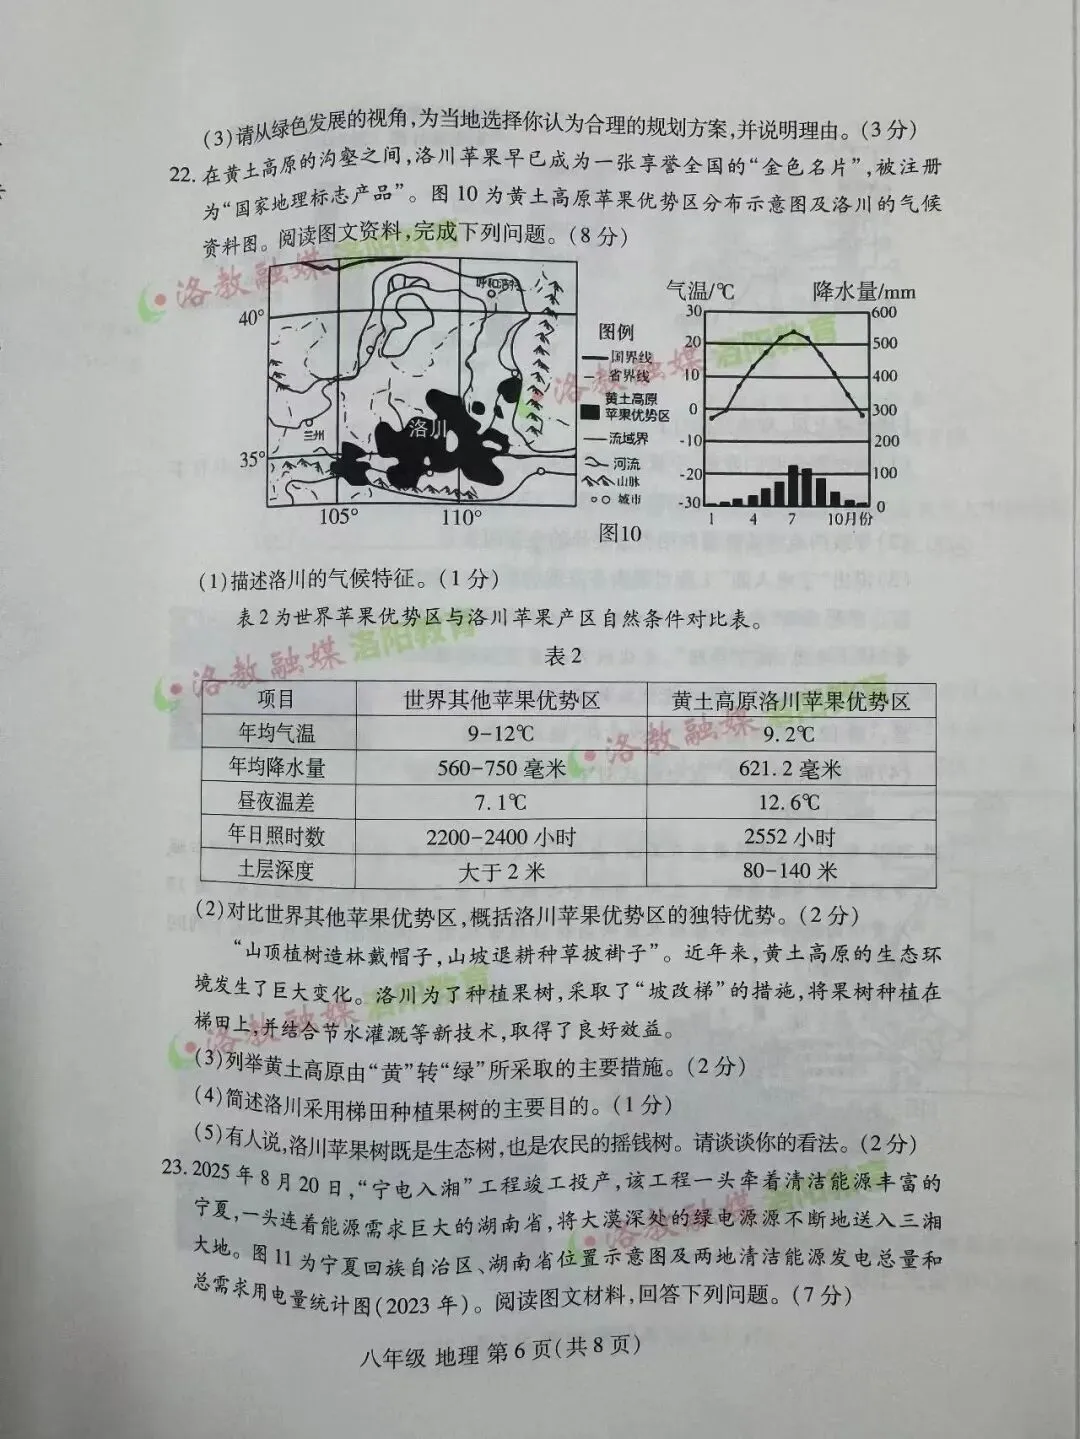 (3)请从绿色发展的视角,为当地选择你认为合理的规划方案,并说明理由。(3分)
22.在黄土高原的沟壑之间,洛川苹果早已成为一张享誉全国的“金色名片”,被注册
为“国家地理标志产品”。图10为黄土高原苹果优势区分布示意图及洛川的气候
资料图。阅读图文资料,完成下列问题。(8分)
洛教融媒 洛阳教育
呼和浩特
40°
洛川
兰州
35°
105° 110°
图例
国界线
省界线
黄土高原
苹果优势区
流域界
河流
山脉
城市
气温/℃ 降水量/mm
30 600
20 500
10 400
0 300
-10 200
-20 100
-30 0
1 4 7 10月份
洛教融媒 洛阳教育
图10
(1)描述洛川的气候特征。(1分)
表2为世界苹果优势区与洛川苹果产区自然条件对比表。
洛教融媒 洛阳教育
表2
项目 世界其他苹果优势区 黄土高原洛川苹果优势区
年均气温 9-12℃ 9.2℃
年均降水量 560-750毫米 621.2毫米
昼夜温差 7.1℃ 12.6℃
年日照时数 2200-2400小时 2552小时
土层深度 大于2米 80-140米
洛教融媒 洛阳教育
(2)对比世界其他苹果优势区,概括洛川苹果优势区的独特优势。(2分)
“山顶植树造林戴帽子,山坡退耕种草披褂子”。近年来,黄土高原的生态环
境发生了巨大变化。洛川为了种植果树,采取了“坡改梯”的措施,将果树种植在
梯田上,并结合节水灌溉等新技术,取得了良好效益。
洛教融媒 洛阳教育
(3)列举黄土高原由“黄”转“绿”所采取的主要措施。(2分)
(4)简述洛川采用梯田种植果树的主要目的。(1分)
(5)有人说,洛川苹果树既是生态树,也是农民的摇钱树。请谈谈你的看法。(2分)
23.2025年8月20日,“宁电入湘”工程竣工投产,该工程一头牵着清洁能源丰富的
宁夏,一头连着能源需求巨大的湖南省,将大漠深处的绿电源源不断地送入三湘
大地。图11为宁夏回族自治区、湖南省位置示意图及两地清洁能源发电总量和
总需求用电量统计图(2023年)。阅读图文材料,回答下列问题。(7分)
洛教融媒 洛阳教育
八年级 地理 第6页(共8页)